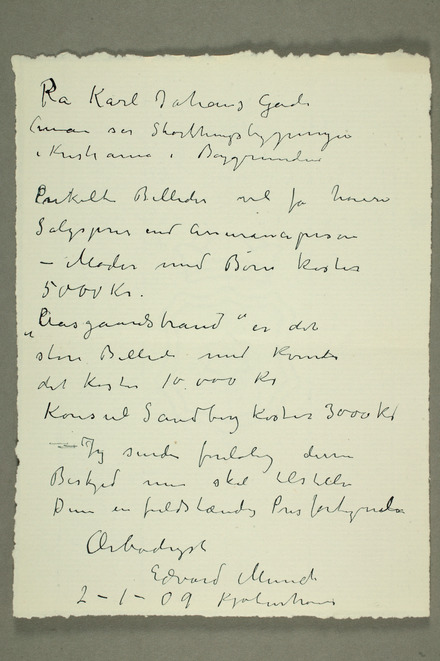 Ra Karl Johans Gade
(man ser Storthingsbygningen
i Kristiania i Baggrunden
Enkelte Billeder vel få høiere
Salgspris end Assuranceprisen
– Moder med Børn koster
5000 Kr.
„Aasgaardstrand" er det
store Billede med Kvinder
det koster 10.000 Kr
Konsul Sandberg koster 3000 Kr
– Jeg sender foreløbig denne
Beskjed men skal tilstille
Dem en fuldstændig Prisfortegnelse
Ærbødigst
Edvard Munch
2–1–09 Kjøbenhavn